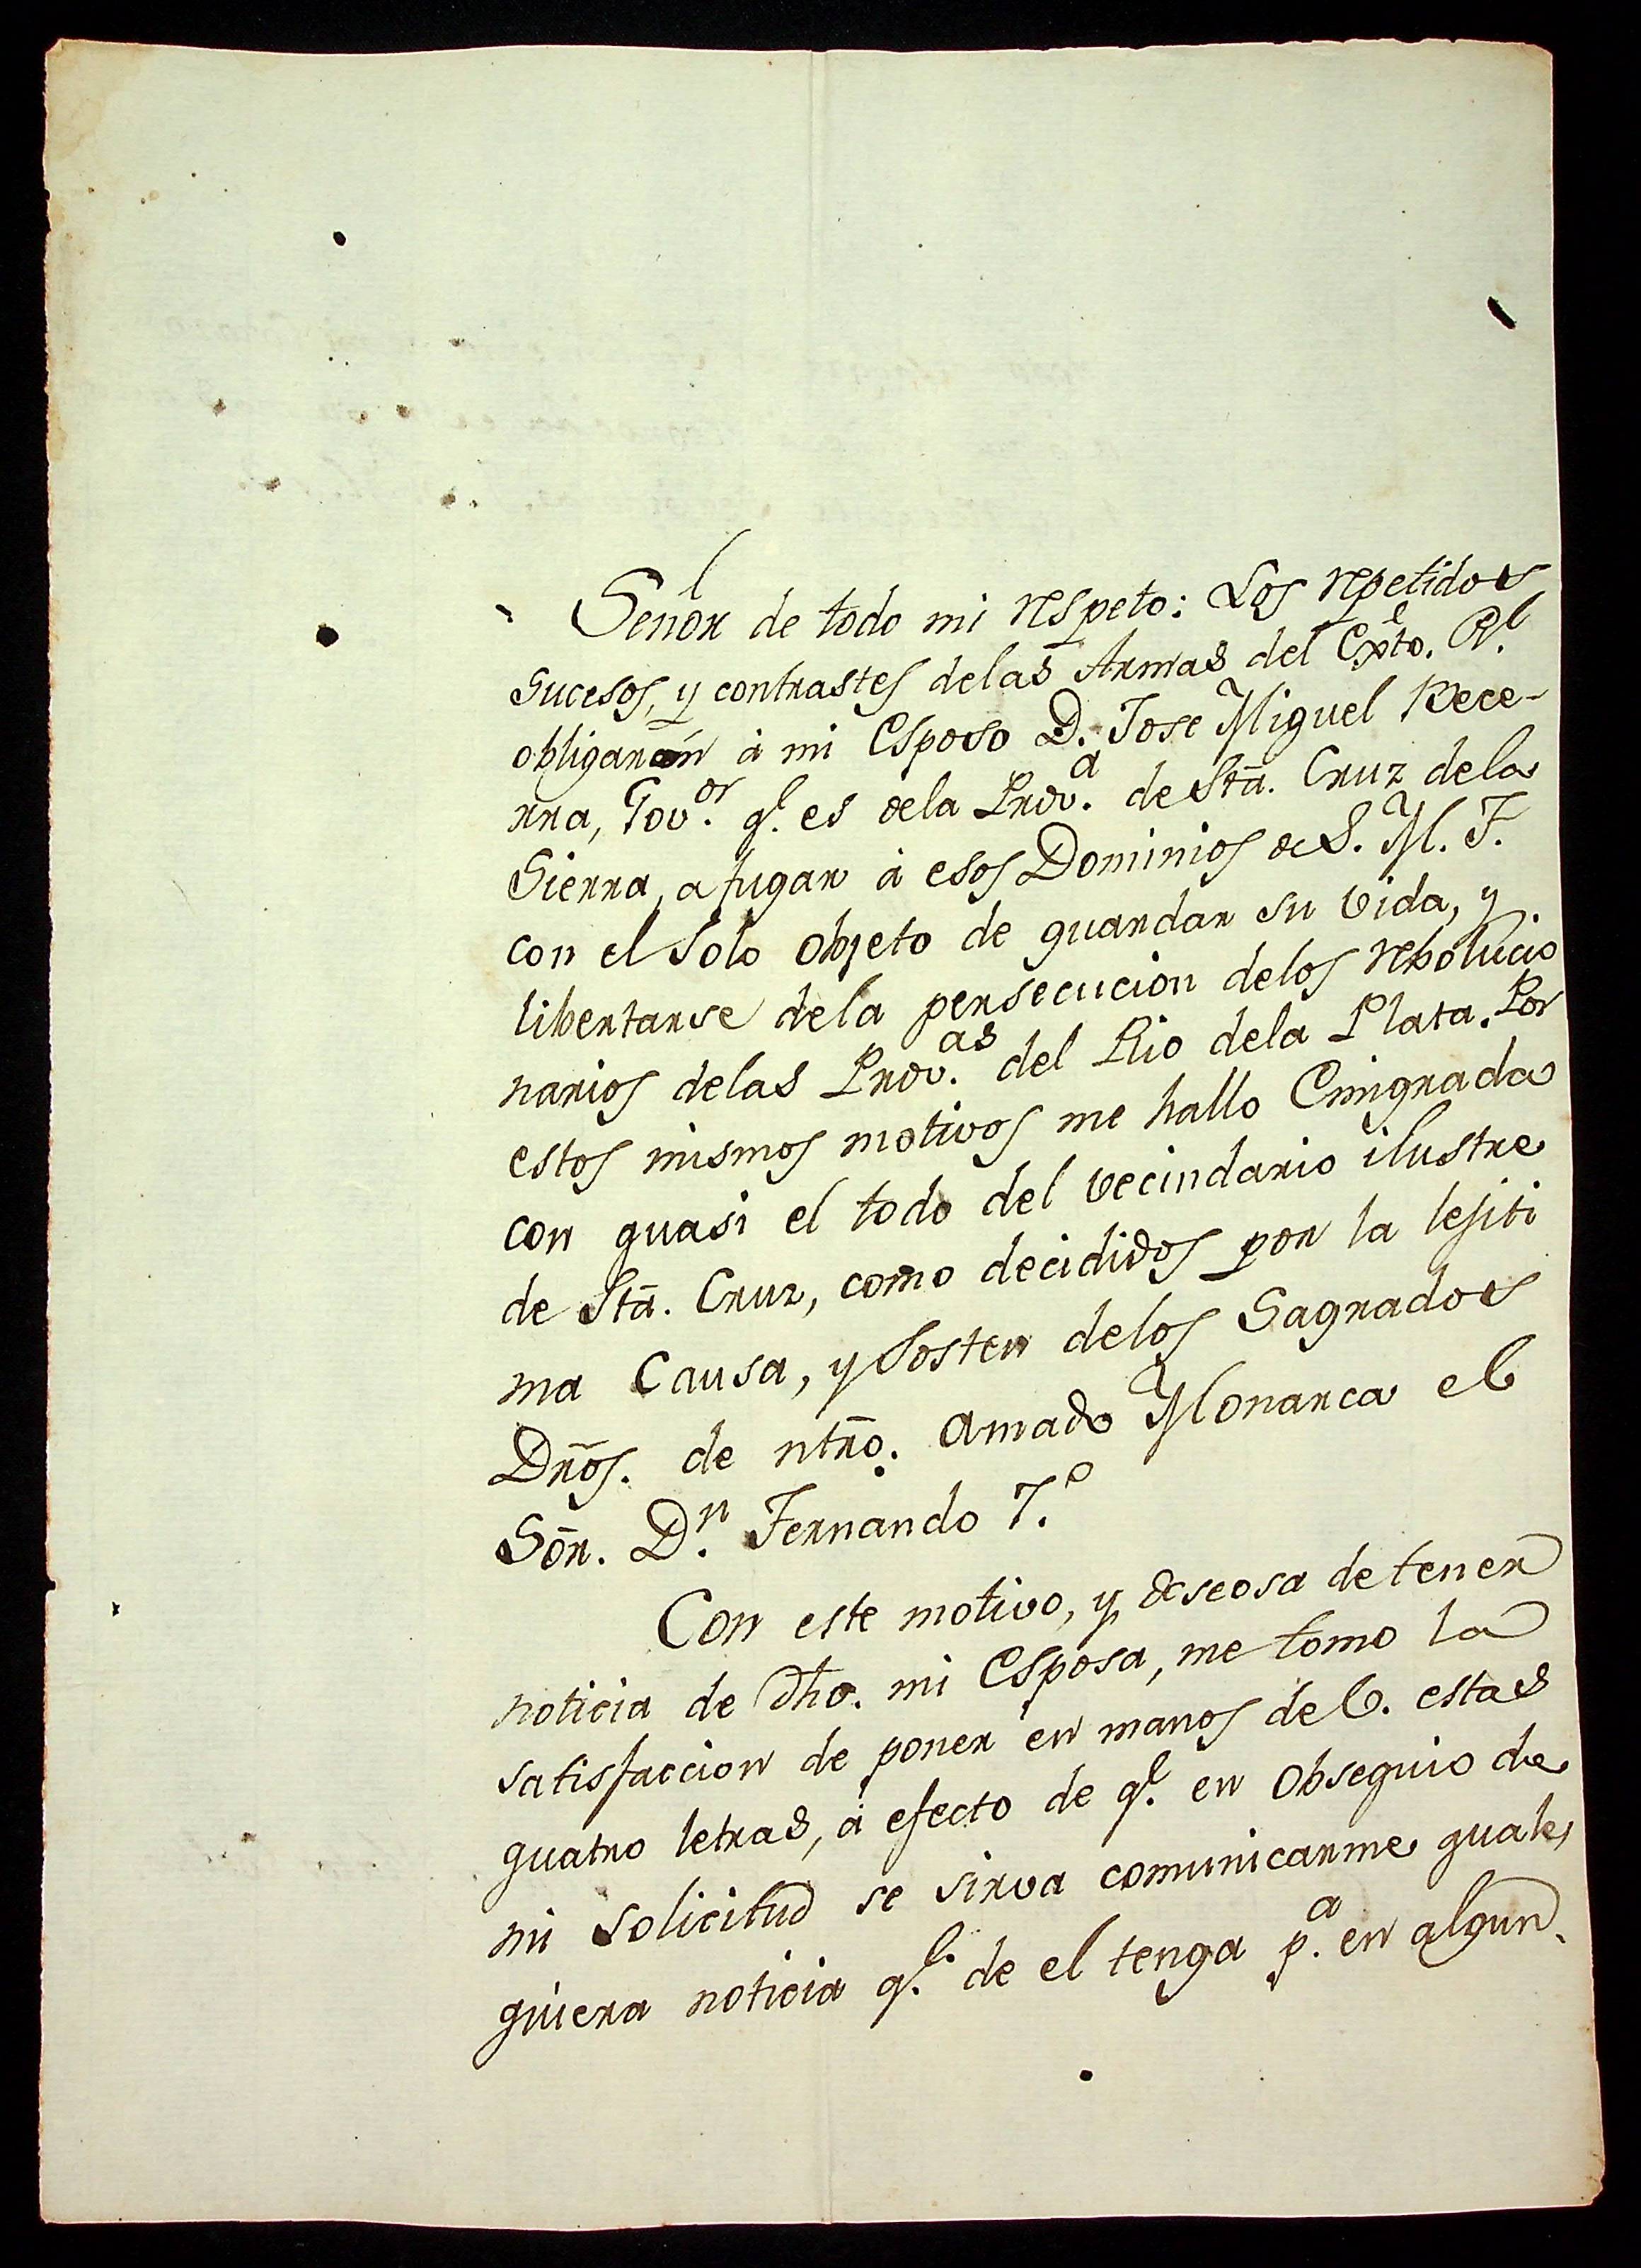 Señor de todo mi respeto: Los repetidos
sucesos, y contrastes delas Armas del Exto. Rl.
obligaron à mi Esposo D. Jose Miguel Bece-
rra, Gov.or q.e es dela Prov.a de Stã. Cruz dela
Sierra, a fugar à esos Dominios de S. M. F.
con el solo objeto de guardar su vida, y
libertarse dela persecucion delos rebolucio
narios delas Prov.as del Rio dela Plata. Por
estos mismos motivos me hallo Emigrada
con quasi el todo del vecindario ilustre
de Stã. Cruz, como decididos por la lejiti
ma Causa, y Sosten delos Sagrados
Drõs. de ntrõ. amado Monarca el
Sõr. D.n Fernando 7.o
Con este motivo, y deseosa de tener
noticia de dho. mi Esposa, me tomo la
satisfaccion de poner en manos de V. estas
quatro letras, à efecto de q.e en obsequio de
mi solicitud se sirva comunicarme quales
quiera noticia q.e de el tenga p.a en algun